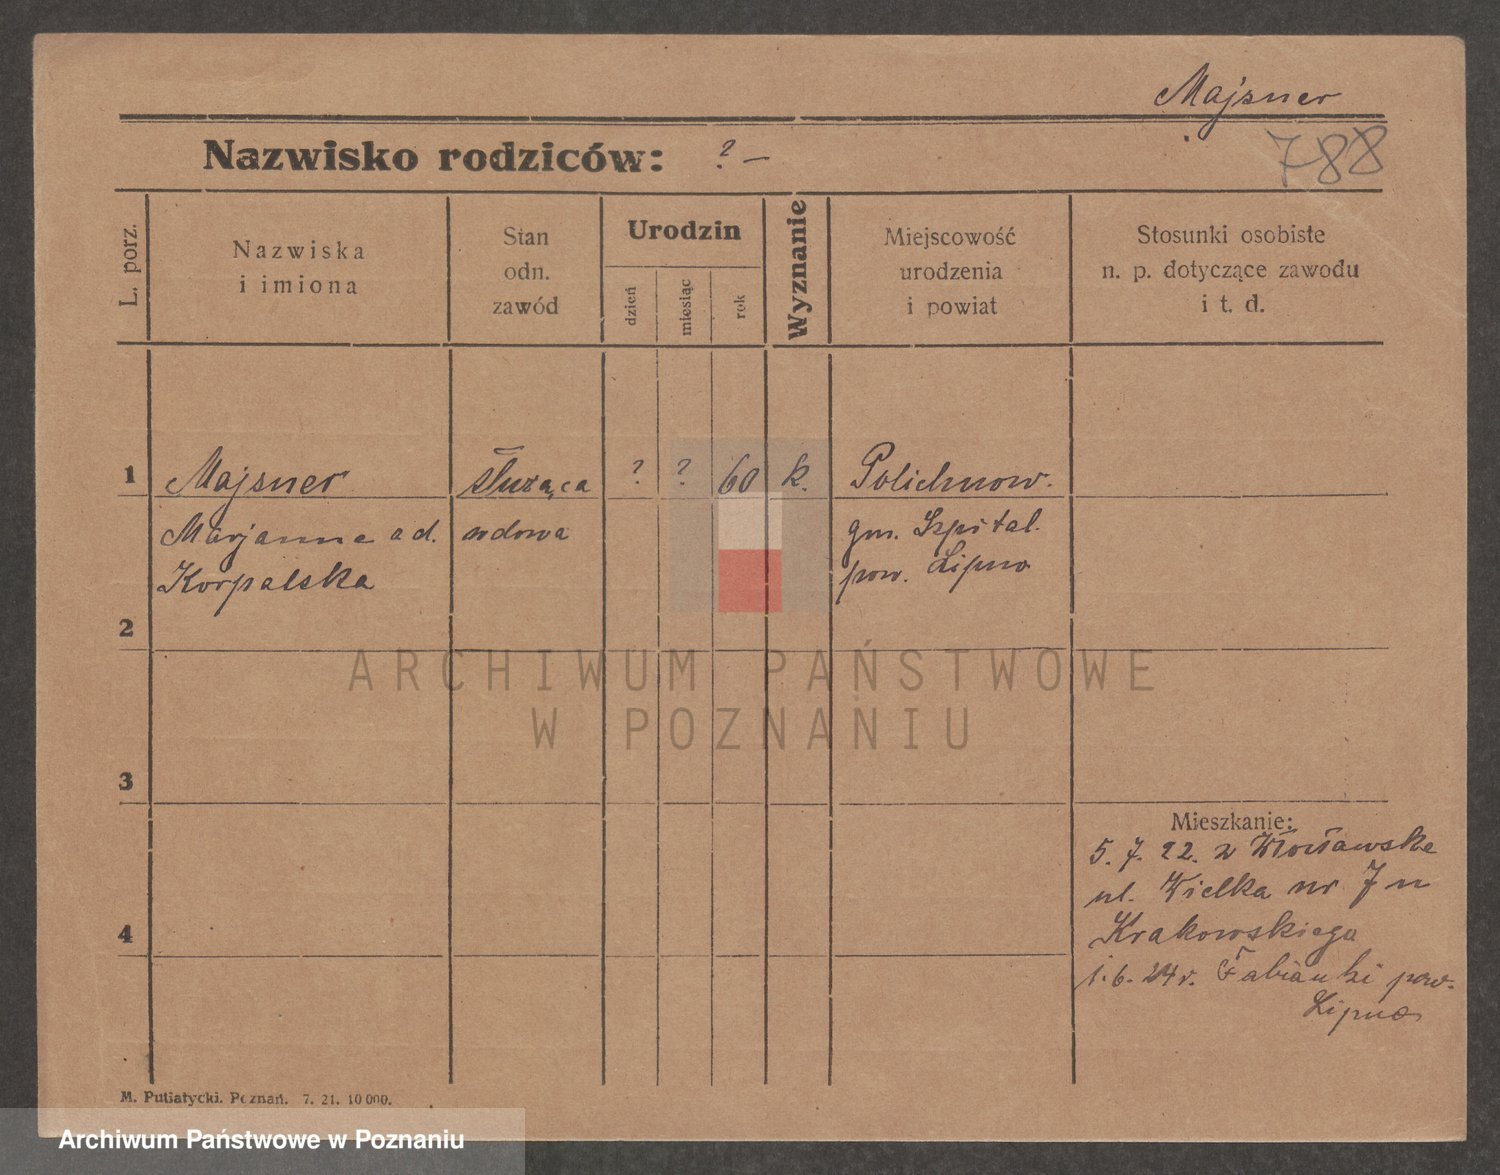 Majsner
788
Nazwisko rodziców: ? —
L. porz.
Nazwiska
i imiona
Stan
odn.
zawód
Urodzin
dzień
miesiąc
rok
Wyznanie
Miejscowość
urodzenia
i powiat
Stosunki osobiste
n. p. dotyczące zawodu
i t. d.
1 Majsner służąca ? ? 60 k. Polichnow.
Marjanna od. wdowa gm. Szpital.
Korpalska pow. Lipno
2
ARCHIWUM PAŃSTWOWE
W POZNANIU
3
Mieszkanie:
5. 7. 22. z Włocławska
ul. Wielka nr 7 u
4 Krakowskiego
1. 6. 24 r. Fabianki pow.
Lipno
M. Putiatycki. Poznań. 7. 21. 10 000.
Archiwum Państwowe w Poznaniu